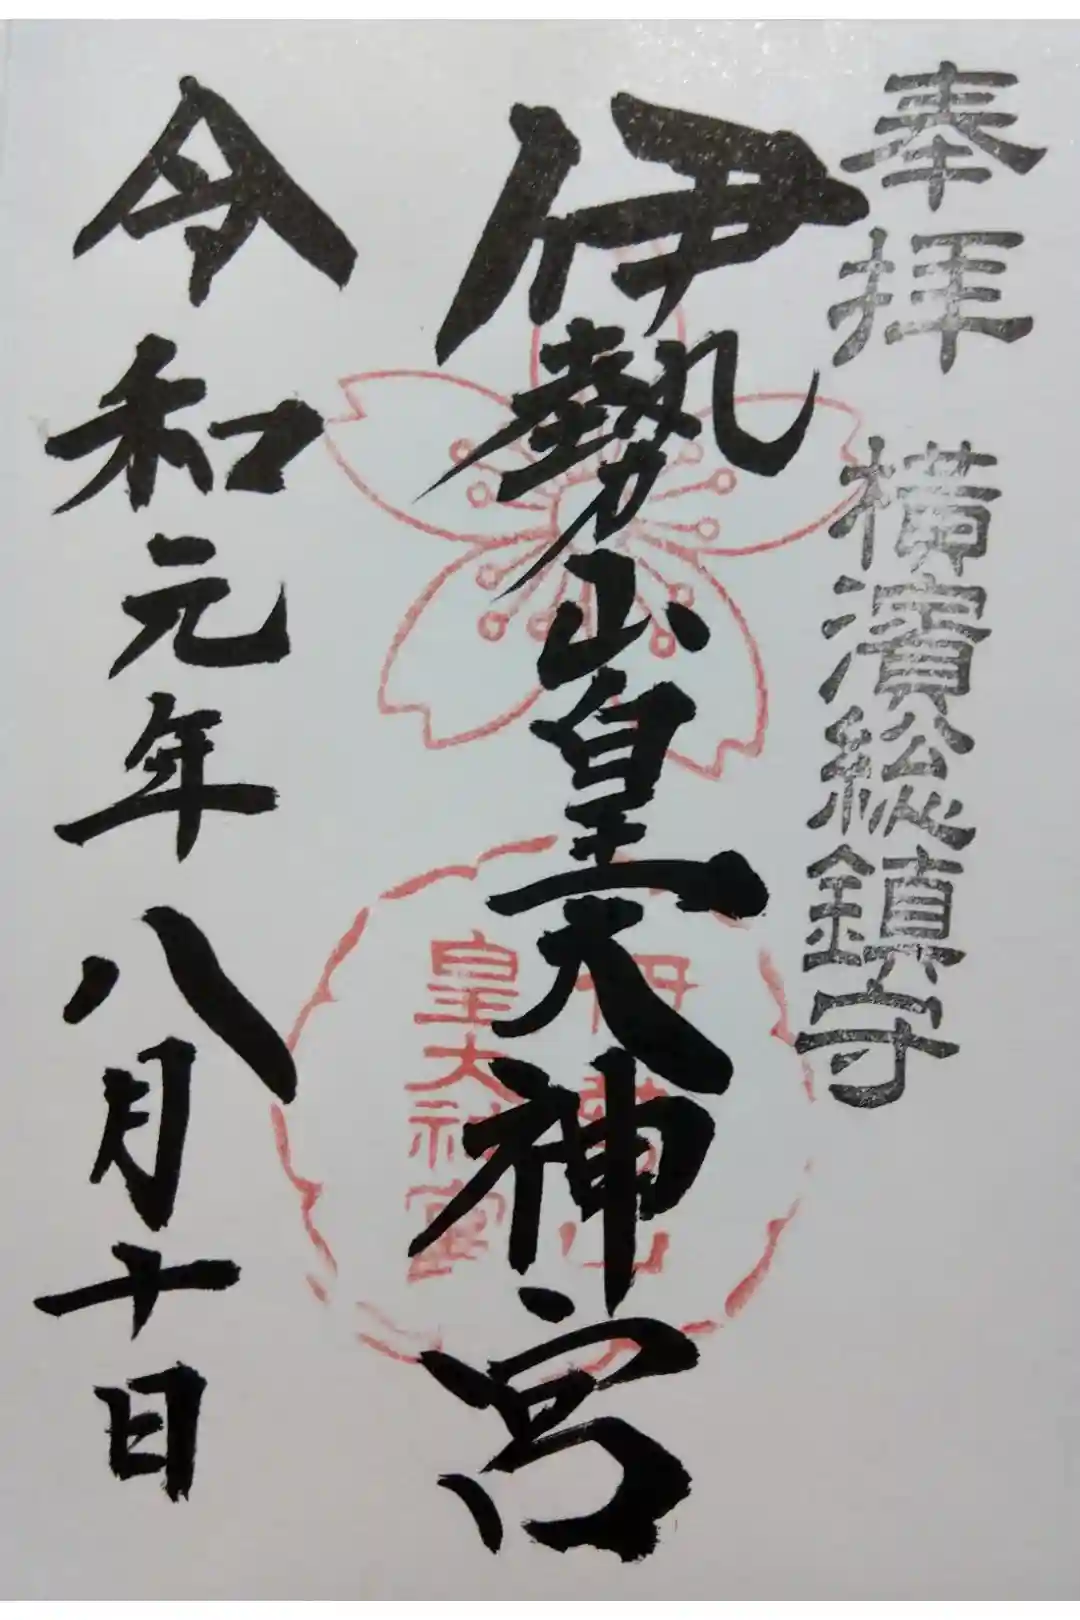 奉拝 横濱総鎮守
伊勢山皇大神宮
令和元年八月十日
伊勢山
皇大神宮